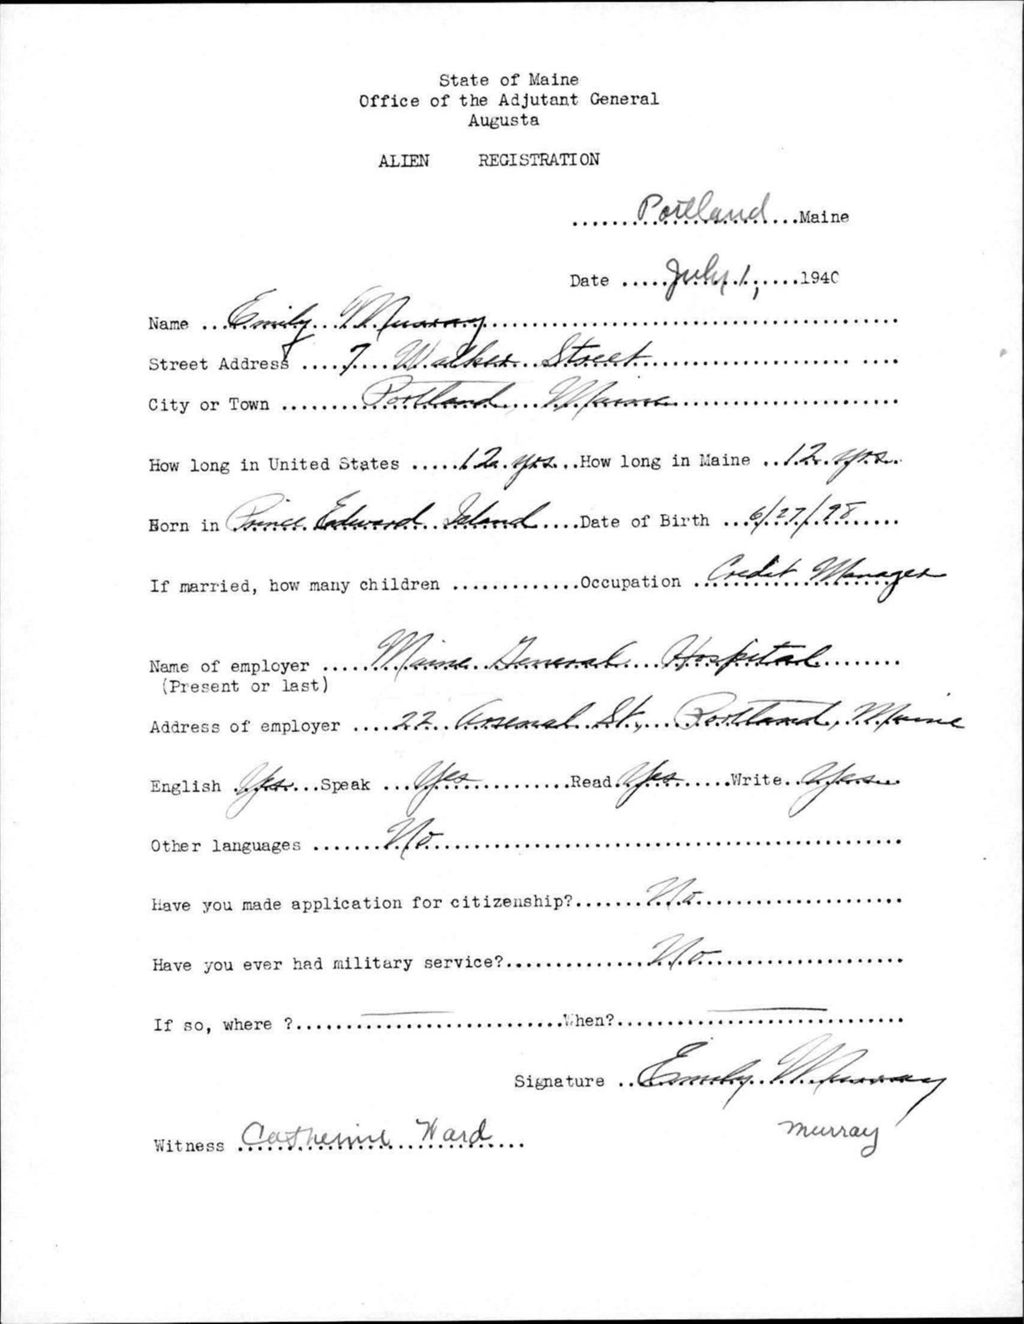 State of Maine
Office of the Adjutant General
Augusta
ALIEN REGISTRATION
.......Portland...Maine
Date .....July 1,.....1940
Name ..Emily Murray..................................
Street Address ....7 Walker Street.................... ....
City or Town ........Portland, Maine.......................
How long in United States .....12 yrs...How long in Maine ..12 yrs.
Born in Prince Edward Island....Date of Birth ...6/27/98......
If married, how many children .............Occupation ..Credit Manager
Name of employer .....Maine General Hospital........
(Present or last)
Address of employer ....22 Arsenal St., Portland, Maine
English .Yes...Speak ...Yes............Read.Yes......Write..Yes..
Other languages .......No..............................................
Have you made application for citizenship?.......No....................
Have you ever had military service?..............No...................
If so, where ?..........................When?............................
Signature ..Emily Murray
Murray
Witness Catherine Ward...